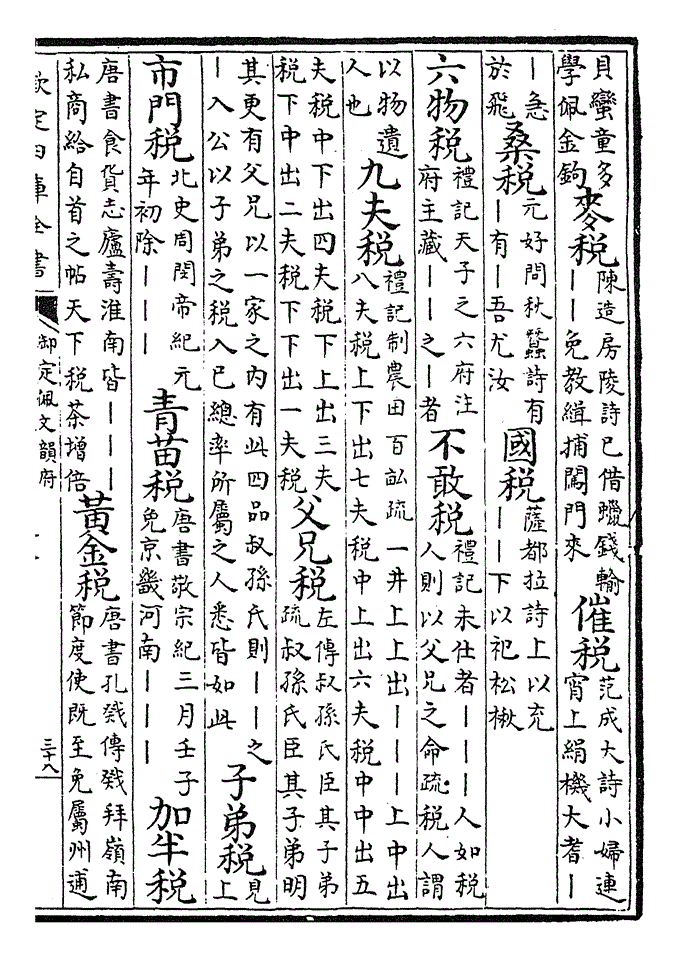 貝蠻童多學佩金鉤 麥税 陳造房陵詩已借蠟錢輸——免教緝捕闖門來 催税 范成大詩小婦連宵上絹機大耆—
—急於飛 桑税 元好問秋蠶詩有—有—吾尤汝 國税 薩都拉詩上以充——下以祀松楸
六物税 禮記天子之六府注府主藏——之—者 不敢税 禮記未仕者———人如税人則以父兄之命疏税人謂
以物遺人也 九夫税 禮記制農田百畝疏一井上上出———上中出八夫税上下出七夫税中上出六夫税中中出五
夫税中下出四夫税下上出三夫税下中出二夫税下下出一夫税 父兄税 左傳叔孫氏臣其子弟疏叔孫氏臣其子弟明
其更有父兄以一家之内有此四品叔孫氏則——之—入公以子弟之税入已總率所屬之人悉皆如此 子弟税 見上
市門税 北史周閔帝紀元年初除——— 青苗税 唐書敬宗紀三月壬子免京畿河南——— 加半税
唐書食貨志廬壽淮南皆———私商給自首之帖天下税茶增倍 黃金税 唐書孔戣傳戣拜嶺南節度使既至免屬州逋
欽定四庫全書 御定佩文韻府 三十八